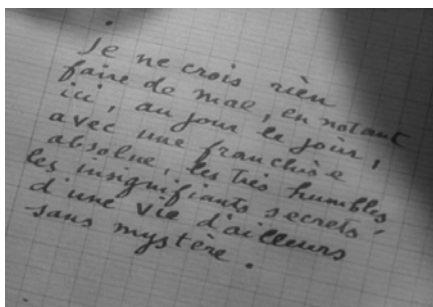 Je ne crois rien
faire de mal, en notant
ici, au jour le jour,
avec une franchise
absolue, les très humbles,
les insignifiants secrets
d'une vie d'ailleurs
sans mystère.